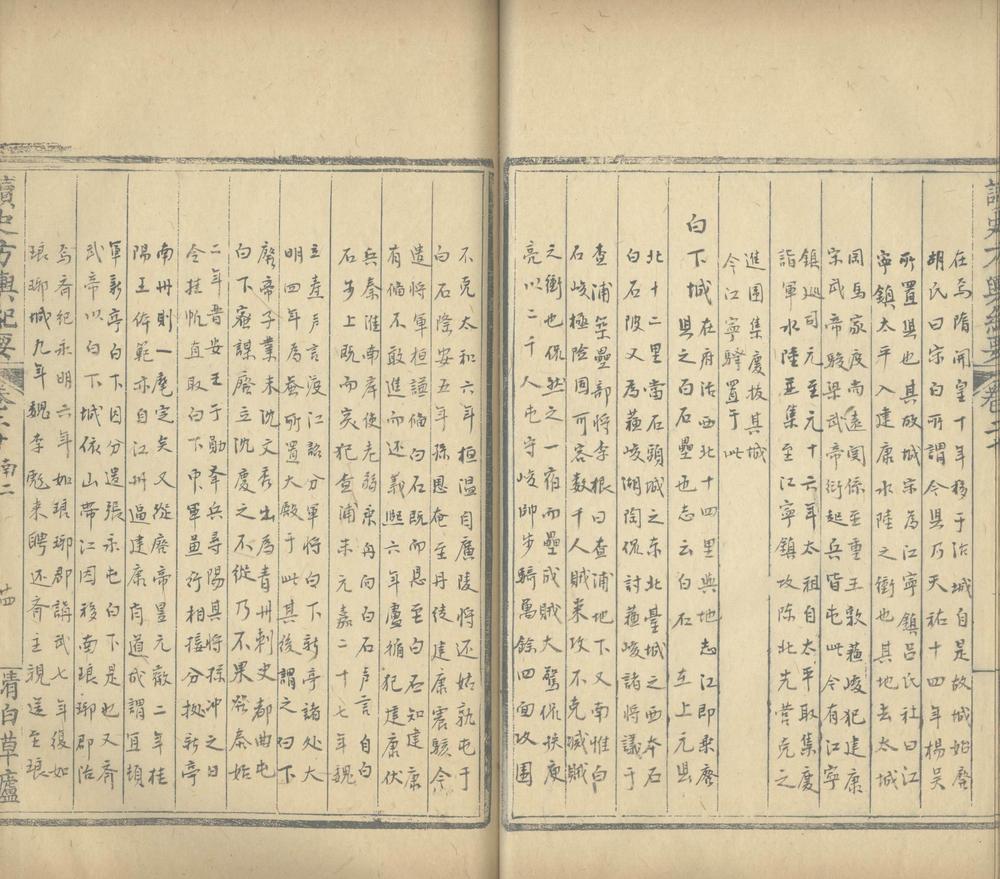 讀史方輿紀要 卷二十
在焉隋開皇十年移于冶城自是故城始廢
胡氏曰宋白所謂今县乃天祐十四年楊吳
所置县也其故城宋為江寧鎮呂氏祉曰江
寧鎮太平入建康水陸之衝也其地去太城
岡馬家度尚遠関係至重王敦蘓峻犯建康
宋武帝駿梁武帝衍起兵皆屯此今有江寧
鎮巡司元至元十六年太祖自太平取集慶
詣軍水陸並集至江寧鎮攻陈北先营克之
進围集慶拔其城
今江寧驛置于此
白下城 在府治西北十四里輿地志江即棄廢
县之白石壘也志云白石 在上元县
北十二里當石頭城之东北臺城之西本石
白石陂又為蘓峻湖陶侃討蘓峻諸将議于
查浦築壘部将李根曰查浦地下又南惟白
石峻極险固可容数千人賊来攻不克滅賊
之衝也侃然之一宿而壘成賊大驚侃挟庾
亮以二千人屯守峻帥步騎萬餘四面攻围
不克太和六年桓温自廣陵将还姑孰屯于
白石隆安五年孫恩奄至丹徒建康震駭令
遣将軍桓謙俻白石既而恩至白石知建康
有俻不敢進而还義熙六年盧循犯建康伏
兵秦淮南岸使老弱乗舟向白石声言自白
石步上既而突犯查浦宋元嘉二十七年魏
主燾声言渡江詔分軍将白下新亭諸处大
明四年為蚕所置大殿于此其後謂之白下
廢帝子業末沈文秀出為青州刺史部曲屯
白下密謀廢立沈慶之不從乃不果泰始
二年晋安王子勛举兵尋陽其将孫冲之曰
今挂帆直取白下申軍并行相接分拠新亭
南州則一麾定矣又從廢帝昱元徽二年桂
陽王休範亦自江州逼建康肖道成謂宜頓
軍新亭白下因分遣張永屯白下是也又齐
武帝以白下城依山带江因移南琅琊郡治
焉齐紀永明六年如琅琊郡講武七年復如
琅琊城九年魏李彪来聘还齐主親送至琅
讀史方輿紀要 南二
清白草廬